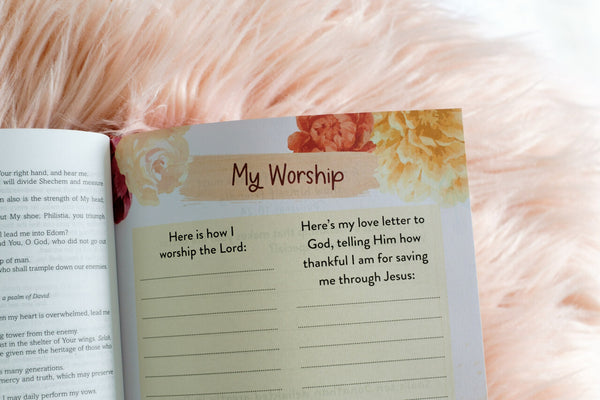 Your right hand, and hear me.
will divide Shechem and measure
an also is the strength of My head;
out My shoe; Philistia, you triumph
l lead me into Edom?
nd You, O God, who did not go out
p of man.
who shall trample down our enemies.
a psalm of David.
en my heart is overwhelmed, lead me
ng tower from the enemy.
st in the shelter of Your wings. Selah.
e given me the heritage of those who
s many generations.
mercy and truth, which may preserve
I may daily perform my vows.
My Worship
Here is how I
worship the Lord:
Here's my love letter to
God, telling Him how
thankful I am for saving
me through Jesus: